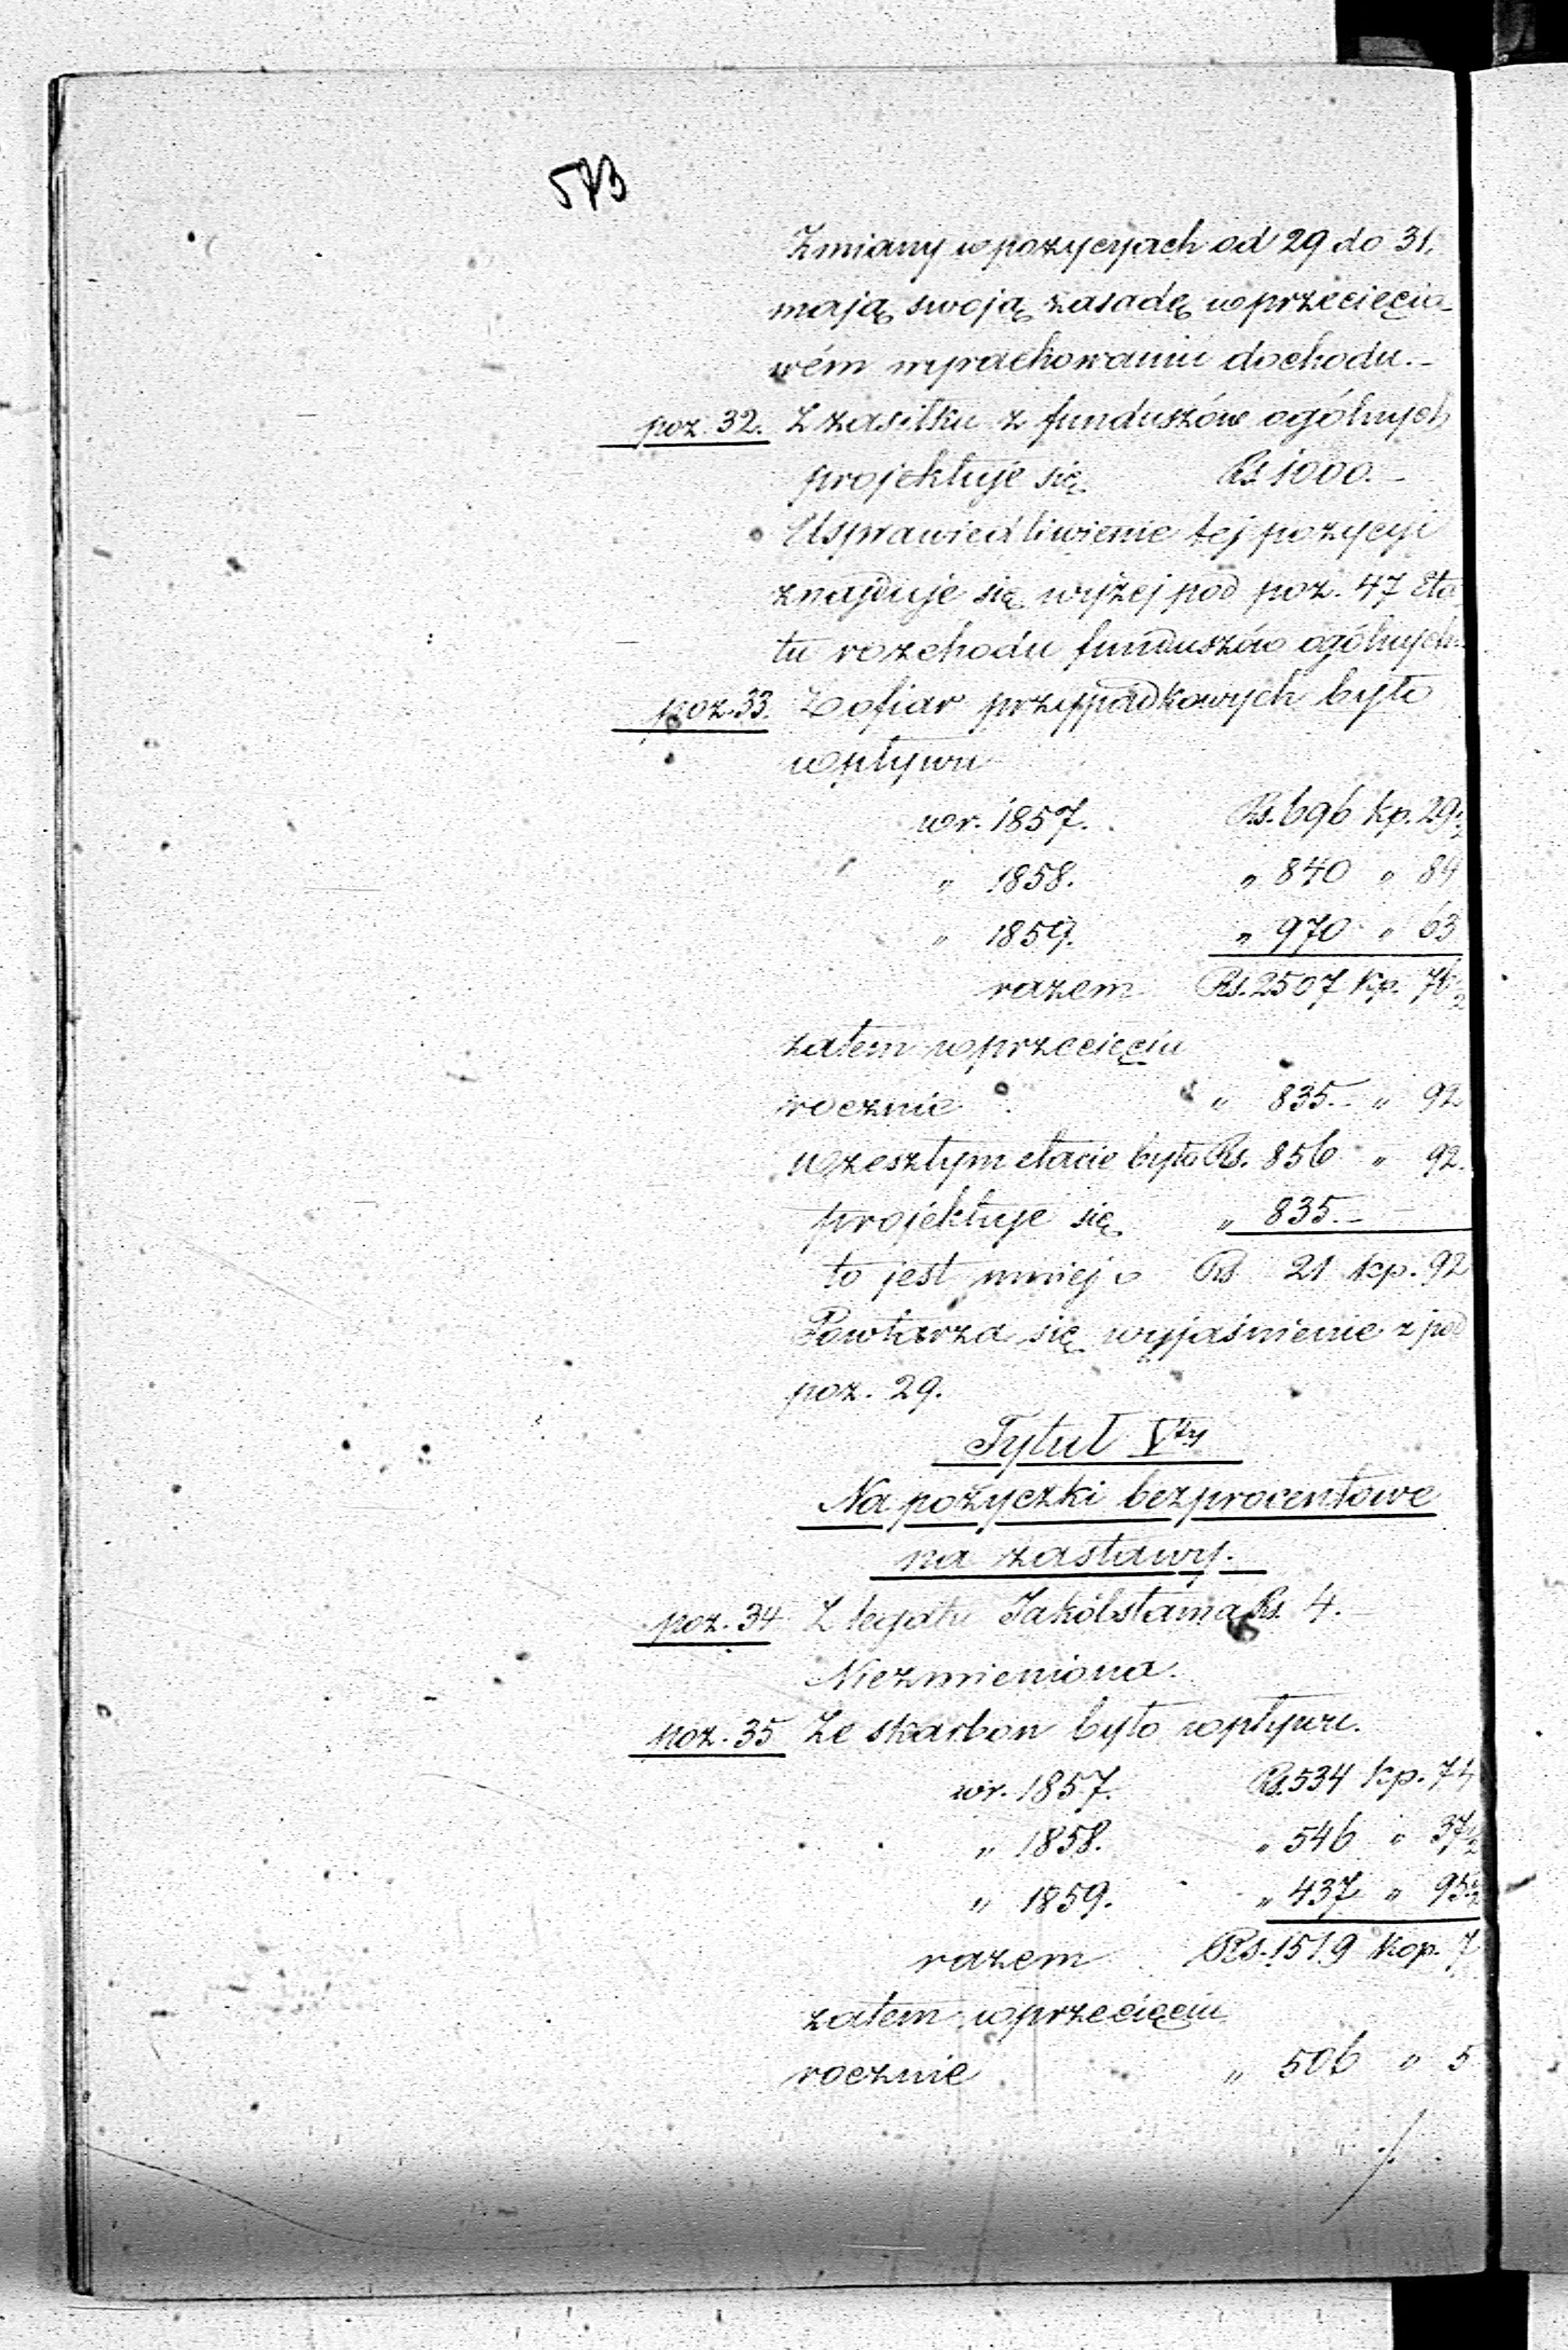 573
Zmiany w pozycyach od 29 do 31.
mają swoją zasadę w przecięcio-
wém wyrachowaniu dochodu.-
poz. 32. Z zasiłku z funduszów ogólnych
projektuje się Rs. 1000.-
Usprawiedliwienie tej pozycyi
znajduje się wyżej pod poz. 47 Eta
tu rozchodu funduszów ogólnych.
poz. 33. Z ofiar przypadkowych było
wpływu
w r. 1857. Rs. 696 kp. 29 1/2
" 1858. " 840 " 84
" 1859. " 970 " 63
razem Rs. 2507 kp. 76 1/2
zatem w przecięciu
rocznie " 835.- " 92
w zeszłym etacie było Rs. 856 " 92.
projektuje się " 835.-
to jest mniej o Rs 21 kp. 92
Powtarza się wyjaśnienie z pod
poz. 29.
Tytuł Vty
Na pożyczki bezprocentowe
na zastawy.
poz. 34 Z legatu Jakóbstama Rs. 4.
Niezmieniona.
poz. 35 Ze skarbon było wpływu.
w r. 1857. Rs. 534 kp. 74
" 1858. " 546 " 37 1/2
" 1859. " 437 " 95 1/2
razem Rs. 1519 kop. 7
zatem w przecięciu
rocznie " 506 " 5
./.